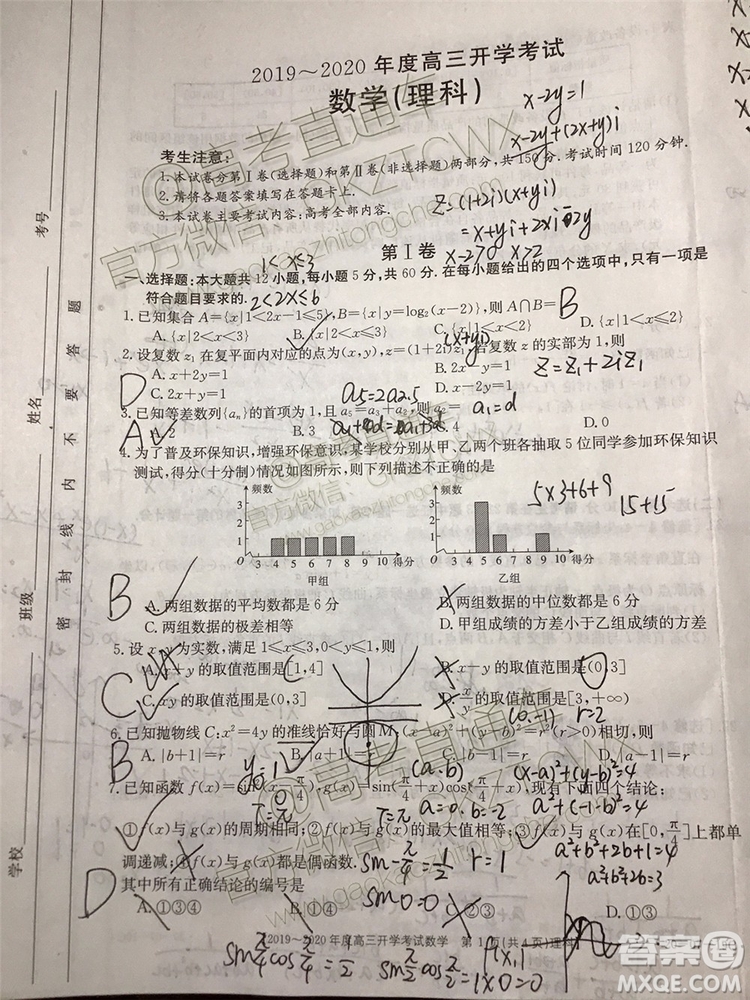 2019～2020年度高三开学考试
数学(理科)
x-2y=1
x-2y+(2x+y)i
考生注意:
1.本试卷分第Ⅰ卷(选择题)和第Ⅱ卷(非选择题)两部分,共150分.考试时间120分钟.
2.请将各题答案填写在答题卡上.
3.本试卷主要考试内容:高考全部内容.
z=(1+2i)(x+yi)
=x+yi+2xi-2y
第Ⅰ卷
1<x≤3
x-2>0 x>2
一、选择题:本大题共12小题,每小题5分,共60分.在每小题给出的四个选项中,只有一项是
符合题目要求的.
2<2x≤6
1.已知集合A={x|1<2x-1≤5},B={x|y=log₂(x-2)},则A∩B=
B
A.{x|2<x<3} B.{x|2<x≤3} C.{x|1<x≤3} D.{x|1<x≤2}
(x+yi)
2.设复数z₁在复平面内对应的点为(x,y),z=(1+2i)z₁,若复数z的实部为1,则
A.x+2y=1 B.2x-y=1
z=z₁+2iz₁
D
C.2x+y=1 D.x-2y=1
3.已知等差数列{aₙ}的首项为1,且a₅=a₃+a₂,则
a₁=d
A
A.2 B.3 C.4
4.为了普及环保知识,增强环保意识,某学校分别从甲、乙两个班各抽取5位同学参加环保知识
测试,得分(十分制)情况如图所示,则下列描述不正确的是
频数 频数
5×3+6+9
15+15
3 2 1 O 3 4 5 6 7 8 9 10 得分
甲组
3 2 1 O 3 4 5 6 7 8 9 10 得分
乙组
B
A.两组数据的平均数都是6分 B.两组数据的中位数都是6分
C.两组数据的极差相等 D.甲组成绩的方差小于乙组成绩的方差
5.设x,y为实数,满足1≤x≤3,0<y≤1,则
A.x+y的取值范围是[1,4] B.x-y的取值范围是(0,3]
C
C.xy的取值范围是(0,3] D.x/y的取值范围是[3,+∞)
(0,-1) r=2
6.已知抛物线C:x²=4y的准线恰好与圆M:(x-a)²+(y-b)²=r²(r>0)相切,则
B
A.|b+1|=r B.|a+1|=r C.|b-1|=r D.|a-1|=r
(a,b) (x-a)²+(y-b)²=4
7.已知函数 ,g(x)=sin(π/4+x)cos(π/4+x),现有下面四个结论:
T=π T=π a=0 b=2 a²+(-1-b)²=4
①f(x)与g(x)的周期相同;②f(x)与g(x)的最大值相等;③f(x)与g(x)在[0,π/4]上都单
调递减;④f(x)与g(x)都是偶函数.
r=1
a²+b²+2b+1=4
a²+b²+2b=3
其中所有正确结论的编号是
sin0=0
D
A.①③④ B.①④ C.②③ D.①③
【2019～2020年度高三开学考试数学 第1页(共4页)理科】
1×0=0
学校
班级
姓名
考号
密封线内不要答题
@高考直通车
官方微信:GKZTCWX
www.gaokaozhitongche.com
答案圈